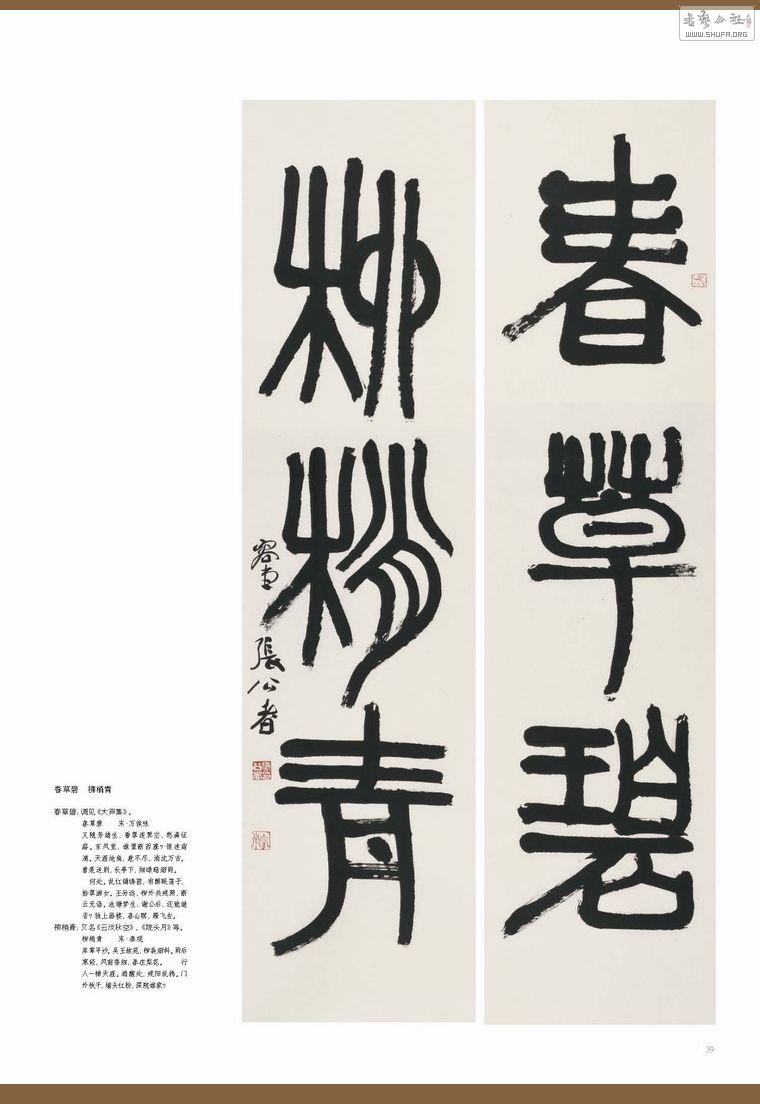 春草碧
柳梢青
容堂 張公者
春草碧 柳梢青
春草碧:调见《大声集》。
春草碧 宋·万俟咏
又随芳绪生,看翠连霁空,愁满征
路。东风里,谁望断西塞?恨迷南
浦。天涯地角,意不尽,消沈万古。
曾是送别,长亭下,细绿暗烟雨。
何处。乱红铺绣茵,有醉眠荡子,
拾翠游女。王孙远,柳外共残照,断
云无语。池塘梦生,谢公后,还能继
否?独上画楼,春山暝,雁飞去。
柳梢青:又名《云淡秋空》、《陇头月》等。
柳梢青 宋·秦观
岸草平沙。吴王故苑,柳袅烟斜。雨后
寒轻,风前香细,春在梨花。 行
人一棹天涯。酒醒处,残阳乱鸦。门
外秋千,墙头红粉,深院谁家?
39
书艺公社
WWW.SHUFA.ORG